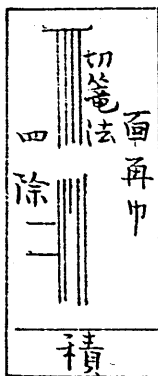 面再巾
切篭法
四除
積